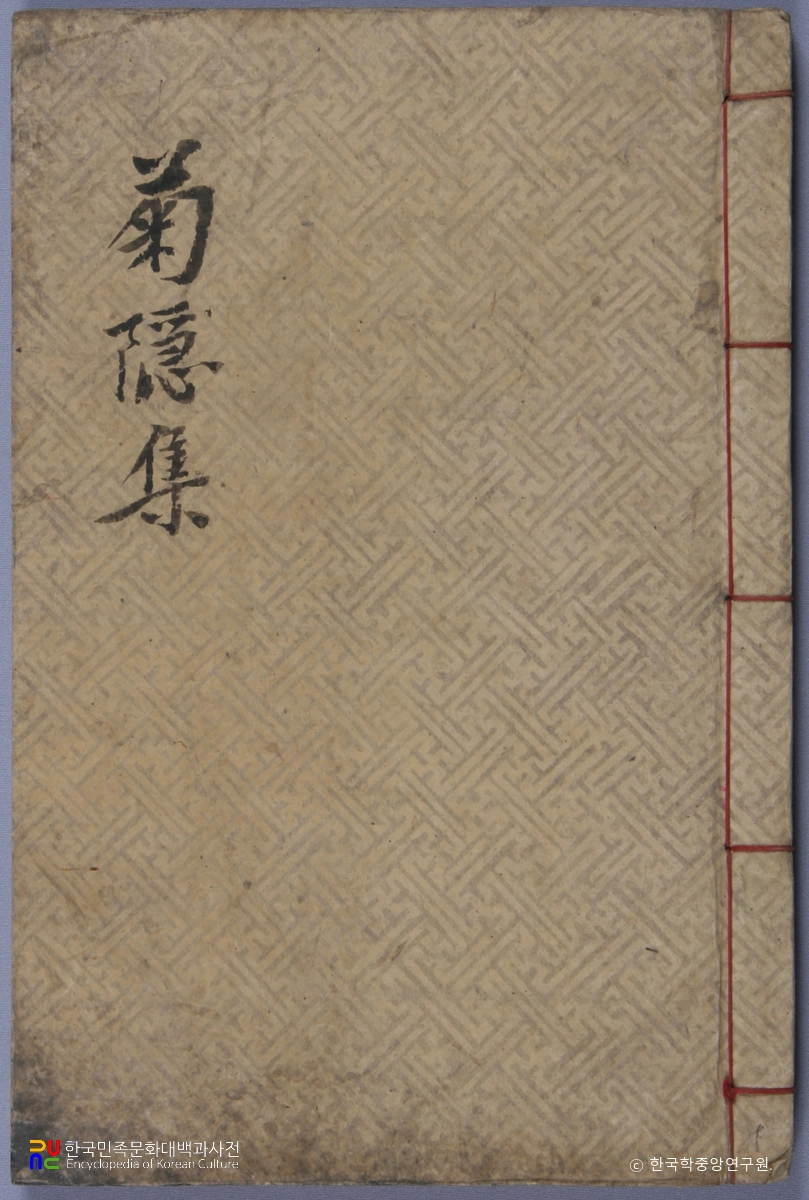 菊隠集
한국민족문화대백과사전
Encyclopedia of Korean Culture
ⓒ 한국학중앙연구원.